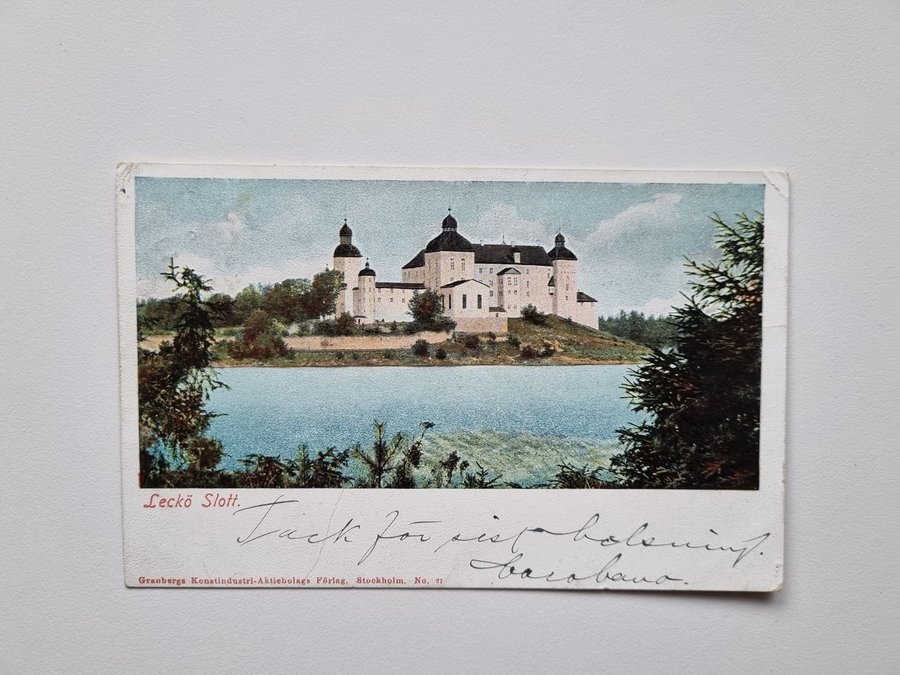 Leckö Slott.
Tack för sist helsning.
Granbergs Konstindustri-Aktiebolags Förlag. Stockholm. No. 27